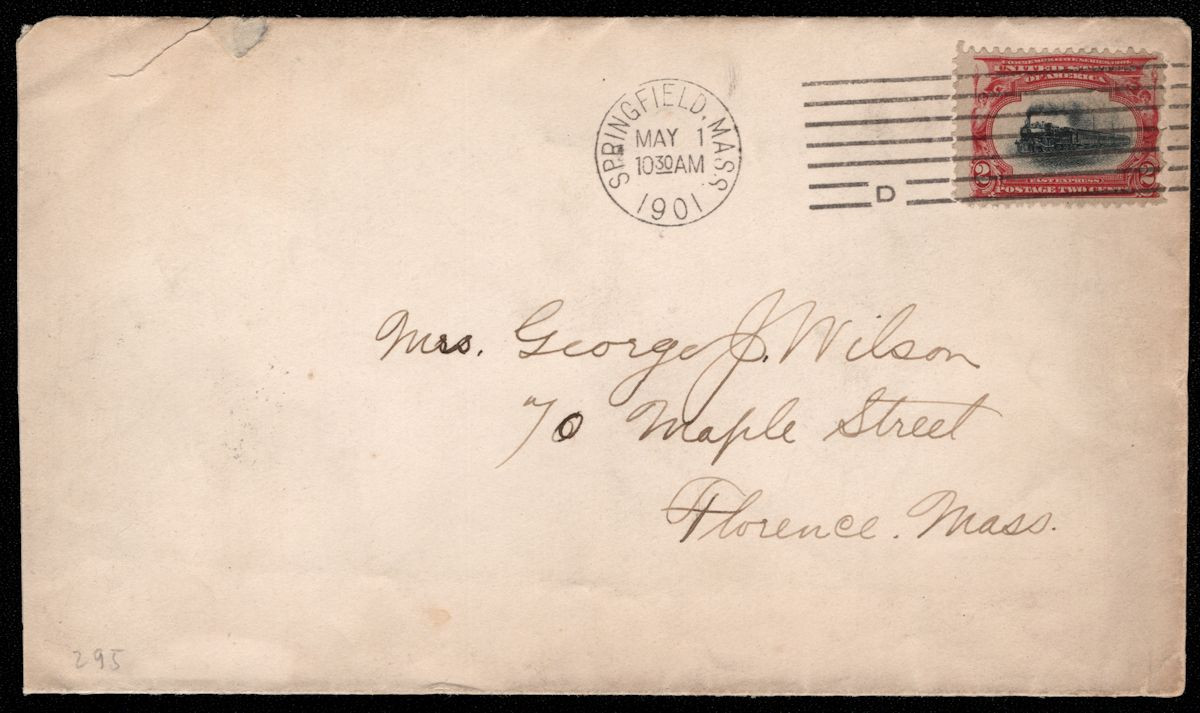 SPRINGFIELD, MASS.
MAY 1
10 30 AM
1901
D
COMMEMORATIVE SERIES 1901
UNITED STATES
OF AMERICA
FAST EXPRESS
2 2
POSTAGE TWO CENTS
Mrs. George J. Wilson
70 Maple Street
Florence. Mass.
295